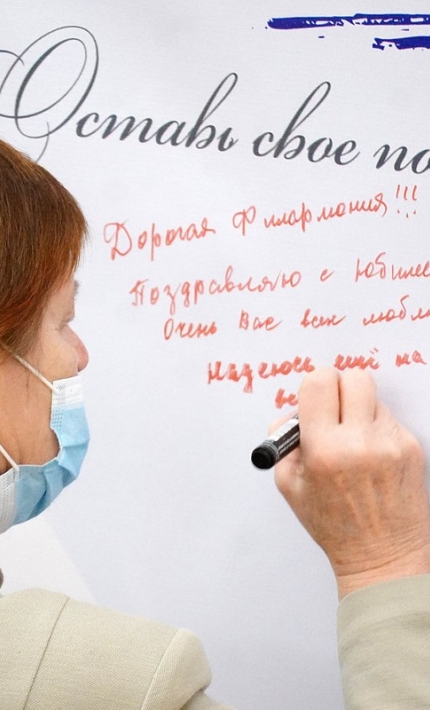 Оставь свое по
Дорогая Филармония!!!
Поздравляю с Юбилее
Очень Вас всех любл
Надеюсь ещё на
ве